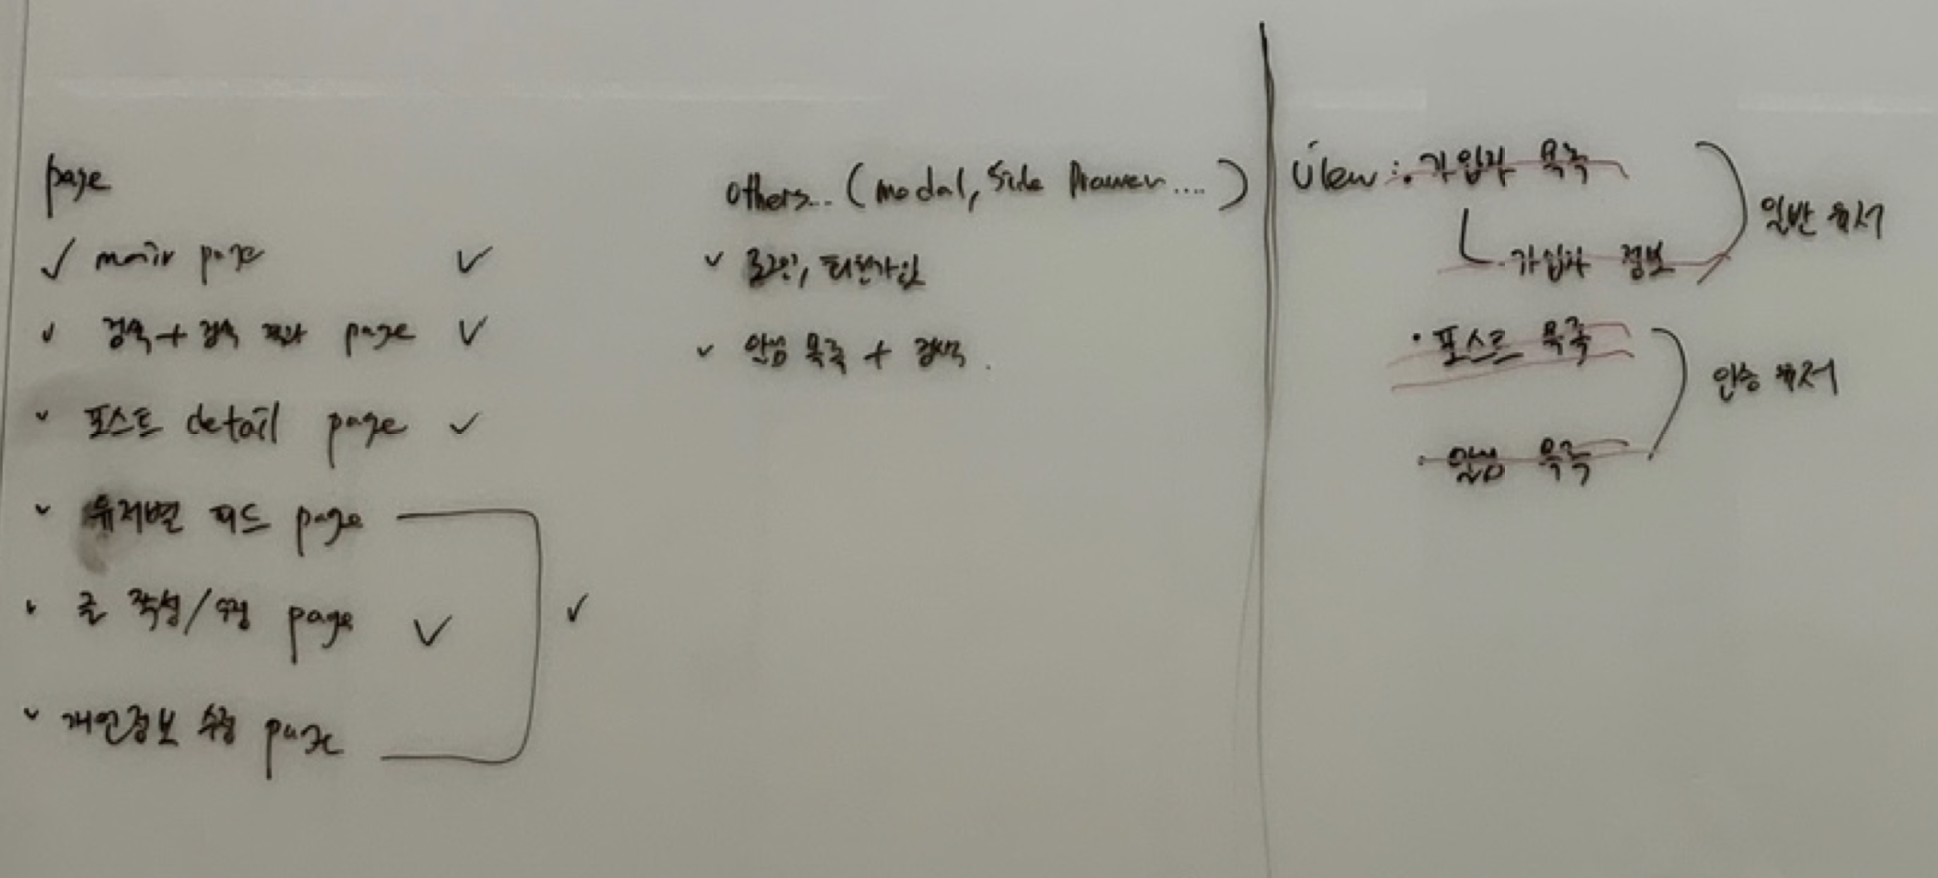 page
✓ main page ✓
✓ 검색 + 검색 결과 page ✓
포스트 detail page ✓
✓ 유저별 피드 page
글 작성/수정 page ✓
✓
✓ 개인정보 수정 page
others... (modal, side Drawer....)
✓ 로그인, 회원가입
✓ 알림 목록 + 검색.
View : · 가입자 목록
가입자 정보
일반 유저
· 포스트 목록
· 알림 목록
인증 유저